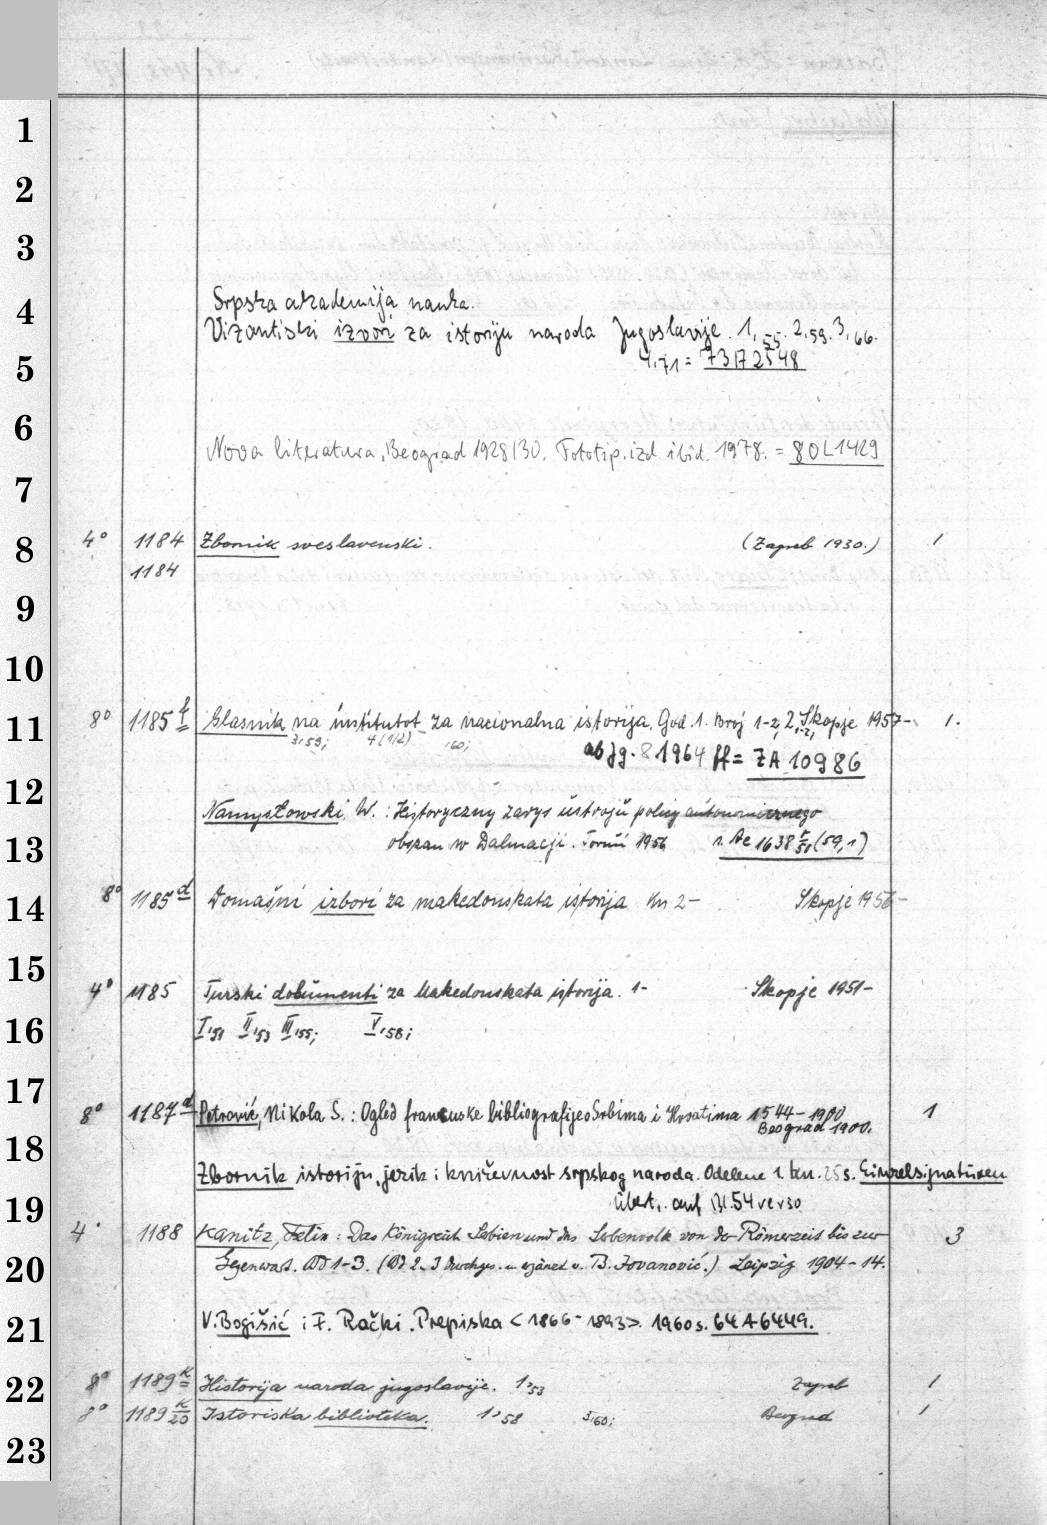 1
2
3
4
Srpska akademija nauka.
Vizantiski izvori za istoriju naroda Jugoslavije. 1,55. 2,59. 3,66.
5
4,71 = 73172548
6
Nova literatura, Beograd 1928/30. Fototip. izd ibid. 1978. = 80L1429
7
8
4° 1184 Zbornik sveslavenski. (Zagreb 1930.) 1
1184
9
10
11
8° 1185 f Glasnik na institutot za nacionalna istorija. God. 1. Broj 1-2, 2,1-2, Skopje 1957- 1.
3,59; 4(1/2) ,60;
ab Jg. 8 1964 ff = ZA 10986
12
Namysłowski, W.: Historyczny zarys ustroju
13
w Dalmacji. Toruń 1956 Ac 1638 (59,1)
14
8° 1185 d Domašni izbori za makedonskata istorija Kn 2- Skopje 1956-
15
4° 1185 Turski dokumenti za Makedonskata istorija. 1- Skopje 1951-
16
I,51 II,53 III,55; V,58;
17
8° 1187 d Petrović, Nikola S.: Ogled francuske bibliografije o Srbima i Hrvatima 1544-1900 1
Beograd 1900.
18
Zbornik istoriju, jezik i književnost srpskog naroda. Odelene 1. 25 s. Einzelsignaturen
19
übert. auf Bl. 54 verso
4° 1188 Kanitz, Felix: Das Königreich Serbien und das Serbenvolk von der Römerzeit bis zur 3
20
Gegenwart. Bd 1-3. (Bd 2. 3 Durchges. u. ergänzt v. B. Jovanović.) Leipzig 1904-14.
21
V. Bogišić i F. Rački. Prepiska <1866-1893>. 1960 s. 64A6449.
22
8° 1189 K Historija naroda jugoslavije. 1,53 Zagreb 1
8° 1189 K/20 Istoriska biblioteka. 1,58 5,60; Beograd 1
23